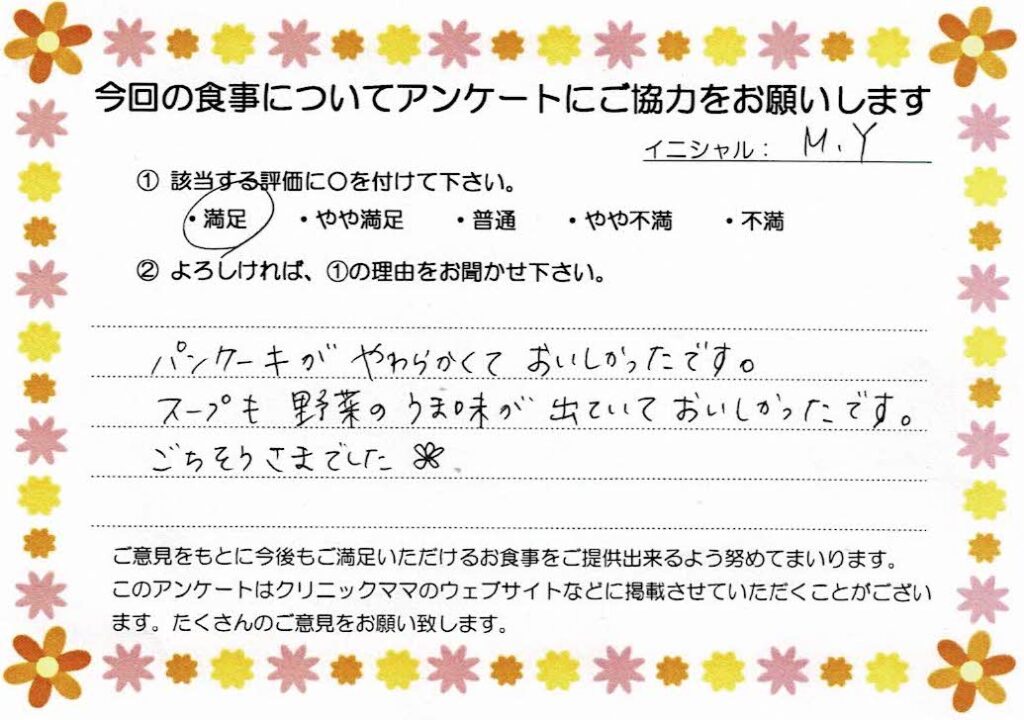 今回の食事についてアンケートにご協力をお願いします
イニシャル： M.Y
① 該当する評価に〇を付けて下さい。
・満足 ・やや満足 ・普通 ・やや不満 ・不満
② よろしければ、①の理由をお聞かせ下さい。
パンケーキが やわらかくて おいしかったです。
スープも 野菜のうま味が 出ていて おいしかったです。
ごちそうさまでした
ご意見をもとに今後もご満足いただけるお食事をご提供出来るよう努めてまいります。
このアンケートはクリニックママのウェブサイトなどに掲載させていただくことがござい
ます。たくさんのご意見をお願い致します。